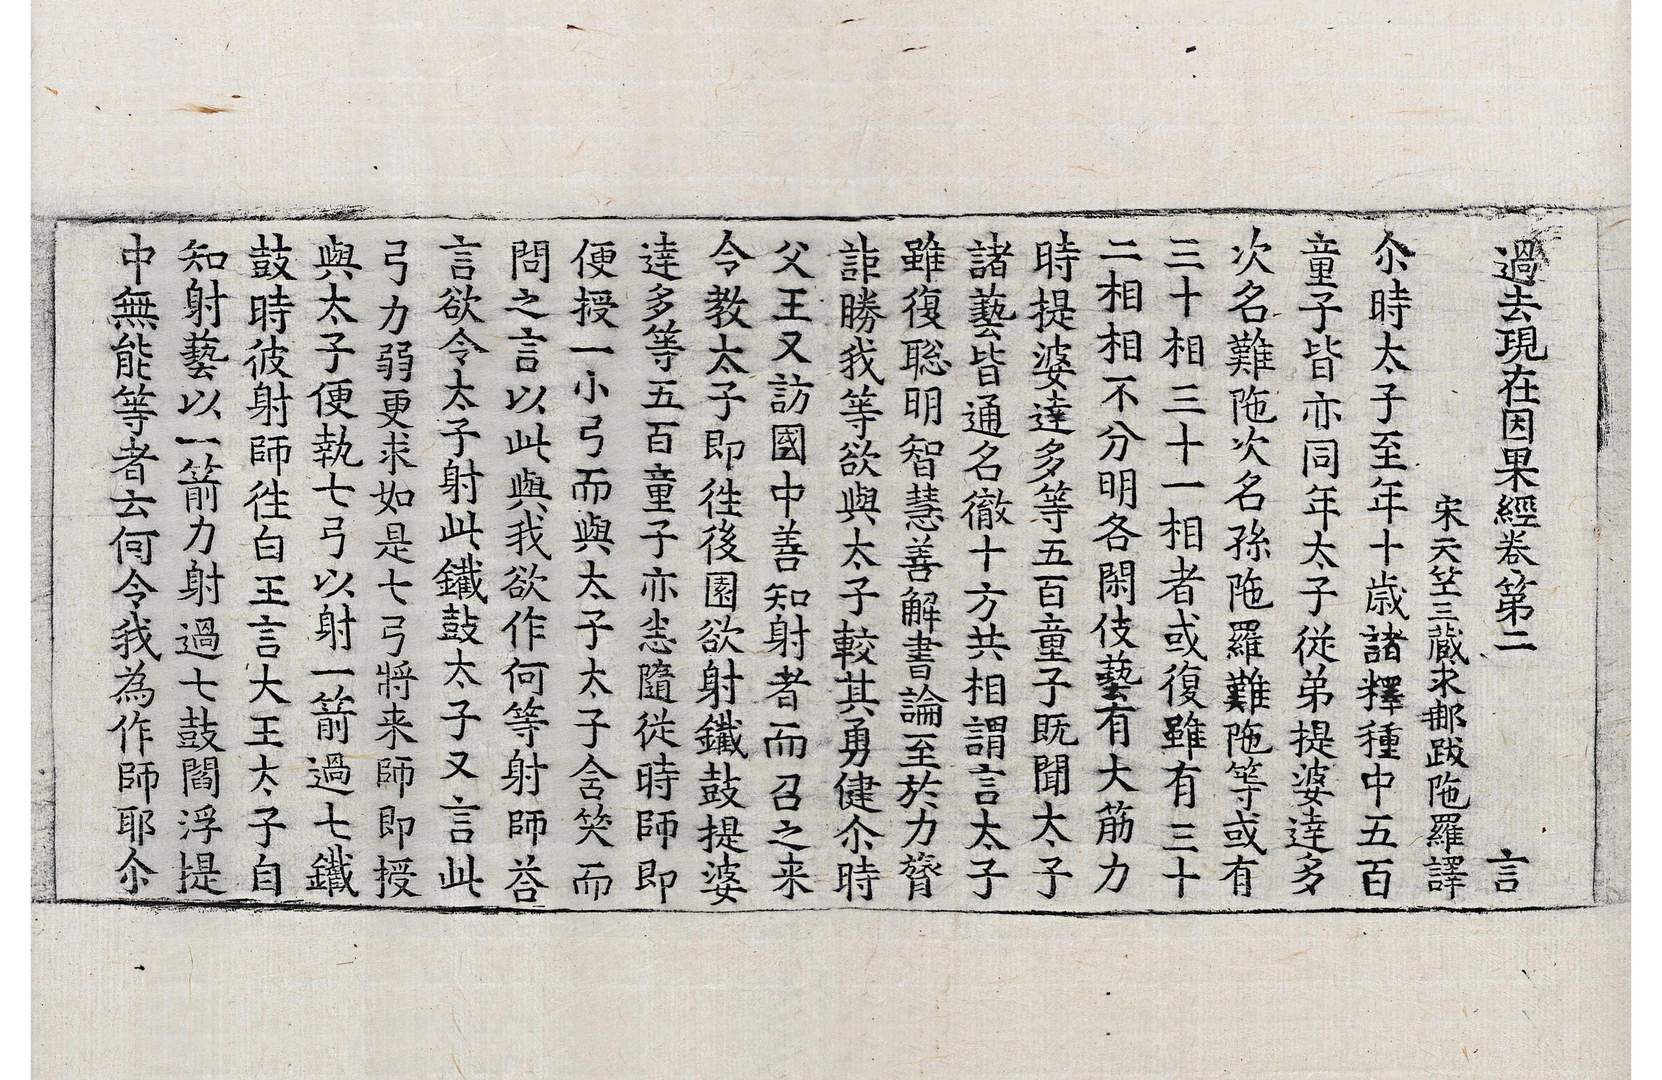 過去現在因果經卷第二 言
宋天竺三藏求那跋陁羅譯
尒時太子至年十歲諸釋種中五百
童子皆亦同年太子従弟提婆達多
次名難陁次名孫陁羅難陁等或有
三十相三十一相者或復雖有三十
二相相不分明各閑伎藝有大筋力
時提婆達多等五百童子既聞太子
諸藝皆通名徹十方共相謂言太子
雖復聡明智慧善解書論至於力膂
詎勝我等欲與太子較其勇健尒時
父王又訪國中善知射者而召之来
令教太子即徃後園欲射鐵鼓提婆
達多等五百童子亦悉隨従時師即
便授一小弓而與太子太子含笑而
問之言以此與我欲作何等射師荅
言欲令太子射此鐵鼓太子又言此
弓力弱更求如是七弓將来師即授
與太子便執七弓以射一箭過七鐵
鼓時彼射師徃白王言大王太子自
知射藝以一箭力射過七鼓閻浮提
中無能等者云何令我為作師耶尒